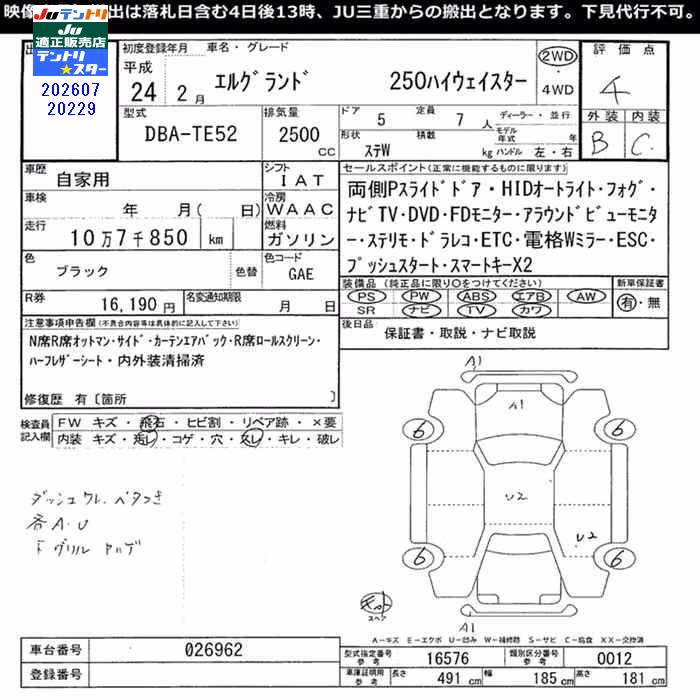 映像 出は落札日含む4日後13時、JU三重からの搬出となります。下見代行不可。
JU テントリ JU
適正販売店
テントリ
★スター
202607
20229
出
初度登録年月 車名・グレード
平成
24 2月 エルグランド 250ハイウェイスター
2WD
・
4WD
評価点
4
外装 内装
B C
型式 排気量 ドア 定員 ディーラー・並行
DBA-TE52 2500 CC
5 7 人 モデル年式 年
形状 積数
ステW kg ハンドル 左・右
車歴 シフト セールスポイント(正常に機能するものに限ります)
自家用 IAT
車検 冷房
年 月( 日) WAAC
走行 燃料
10万7千850 km ガソリン
色 色コード
ブラック 色替 GAE
両側Pスライドドア・HIDオートライト・フォグ・
ナビTV・DVD・FDモニター・アラウンドビューモニタ
ー・ステリモ・ドラレコ・ETC・電格Wミラー・ESC・
プッシュスタート・スマートキーX2
装備品(純正品に限り○をつけてください) 新車保証書
PS PW ABS エアB AW 有・無
SR ナビ TV カワ
R券 16,190円 名変通知期限 月 日
後日品 保証書・取説・ナビ取説
注意事項申告欄(不具合内容等は具体的に記入して下さい)
N席R席オットマン・サイド・カーテンエアバック・R席ロールスクリーン・
ハーフレザーシート・内外装清掃済
修復歴 有〔箇所 〕
検査員記入欄
FW キズ・飛石・ヒビ割・リペア跡・×要
内装 キズ・汚レ・コゲ・穴・スレ・キレ・破レ
ダッシュクレ. ベタつき
各A.U
Fグリル
A1
A1
6 6
U2
U2
6 6
スペア
A1
A−キズ E−エクボ U−凹み W−補修跡 S−サビ C−腐食 XX−交換済
車台番号 026962
登録番号
型式指定番号 参考 16576 類別区分番号 参考 0012
車庫証明用 参考 長さ 491 cm 幅 185 cm 高さ 181 cm